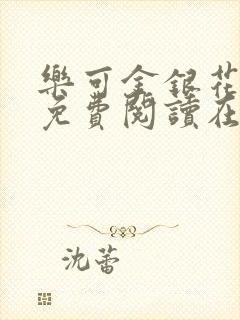 樂可金銀花
免費閱讀在
沈蕾